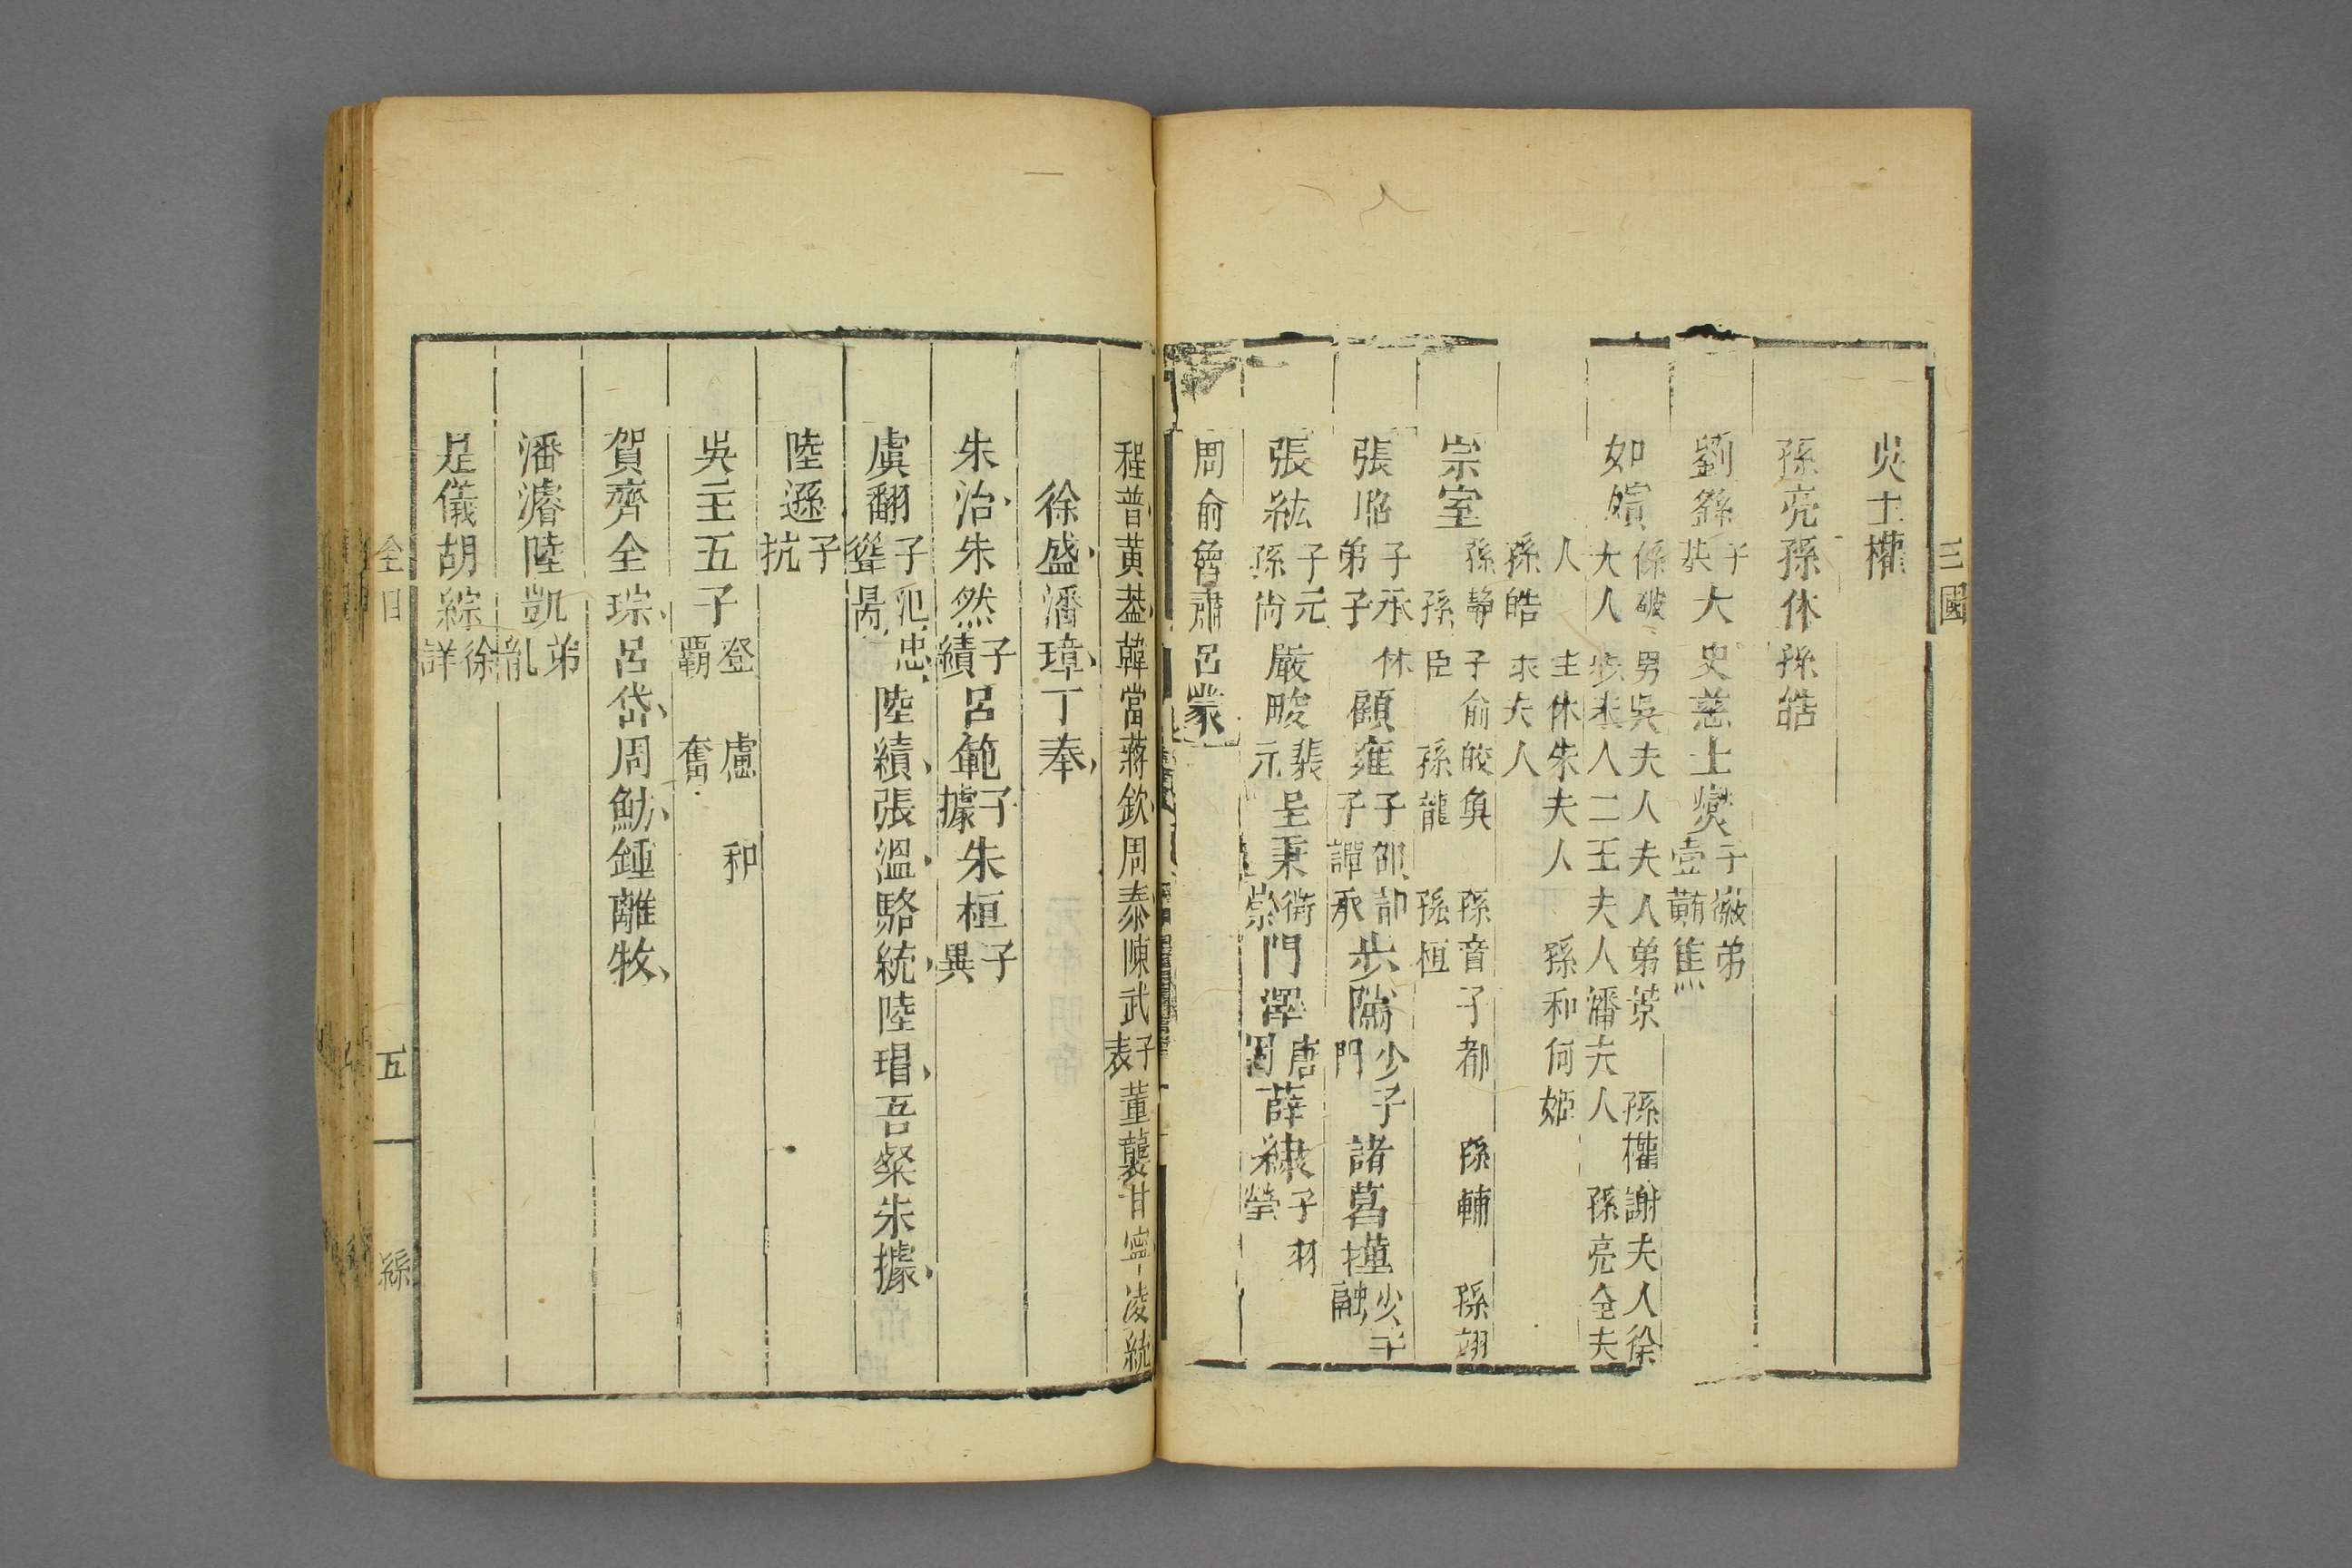 三國
吳主權
孫亮孫休孫皓
劉繇子基大史慈士燮子徽弟壹䵋隹灬
如嬪係破男吳夫人夫人弟景 孫權謝夫人徐
大人步夫人二王夫人潘夫人 孫亮全夫
人 主休朱夫人 孫和何姬
孫皓求夫人
宗室孫靜子俞皎奐 孫音子都 孫輔 孫翊
孫臣 孫龍 孫恒
張昭子承休弟子顧雍子邵子譚承步隲少子門諸葛瑾少子融
張紘子元孫尚嚴畯裴元呈秉徵崇門澤唐固薛綜子羽瑩
周俞魯肅呂蒙
程普黃葢韓當蔣欽周泰陳武子表董襲甘寧凌統
徐盛潘璋丁奉
朱治朱然子績呂範子據朱桓子異
虞翻子汜忠聳昺陸績張溫駱統陸瑁吾粲朱據
陸遜子抗
吳主五子登 慮 和
霸 奮
賀齊全琮呂岱周魴鍾離牧
潘濬陸凱弟胤
是儀胡綜徐詳
全目 五 繇